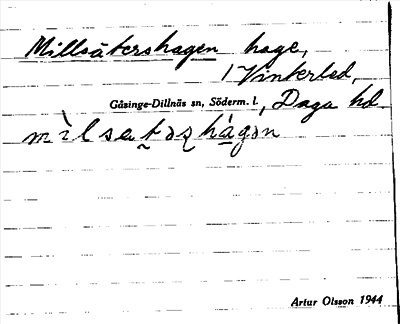 Millsätershagen hage,
1 Vinterled,
Gåsinge-Dillnäs sn, Söderm. l., Daga hd.
mìlsatəʂhágən
Artur Olsson 1944